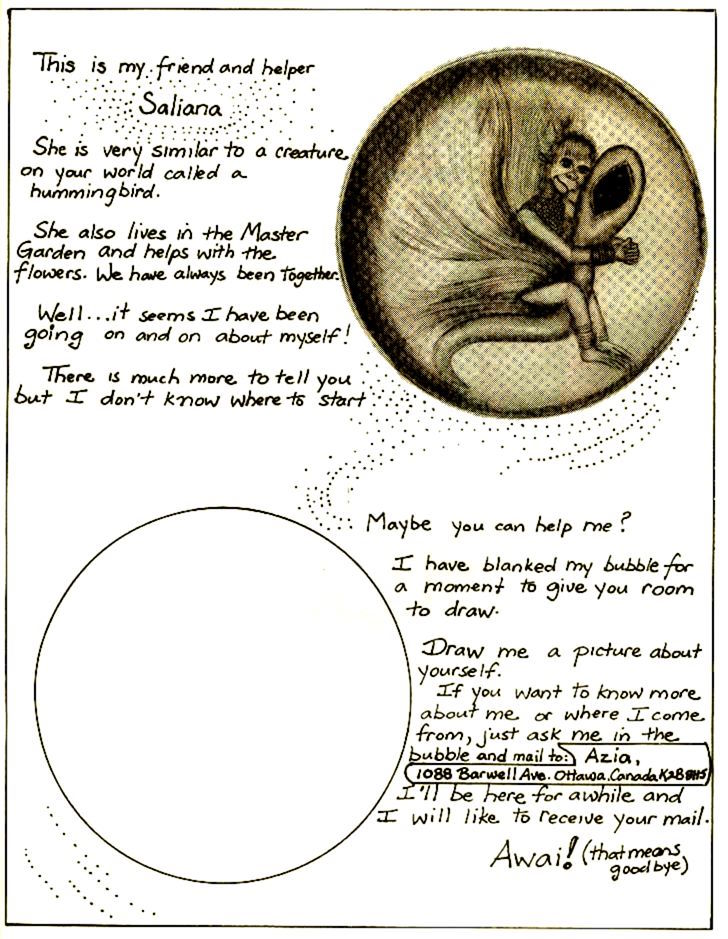 This is my friend and helper
Saliana
She is very similar to a creature
on your world called a
hummingbird.
She also lives in the Master
Garden and helps with the
flowers. We have always been together.
Well...it seems I have been
going on and on about myself!
There is much more to tell you
but I don't know where to start
Maybe you can help me?
I have blanked my bubble for
a moment to give you room
to draw.
Draw me a picture about
yourself.
If you want to know more
about me or where I come
from, just ask me in the
bubble and mail to: Azia,
1088 Barwell Ave. Ottawa, Canada, K2B
I'll be here for awhile and
I will like to receive your mail.
Awai! (that means
goodbye)